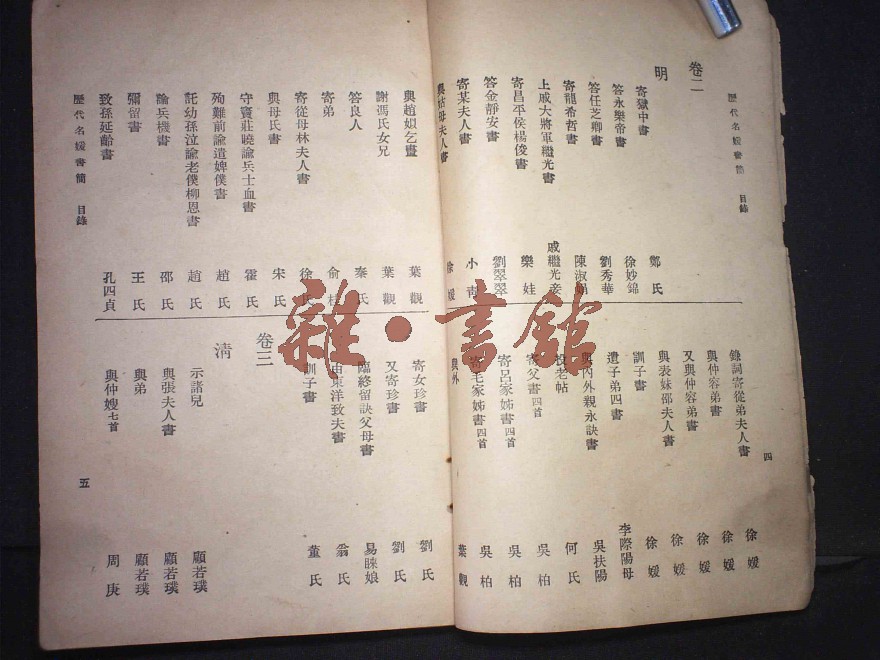 歷代名媛書簡　目錄
卷二
明
寄獄中書　鄭氏
答永樂帝書　徐妙錦
答任芝卿書　劉秀華
寄龍希哲書　陳淑
上戚大將軍繼光書　戚繼光妾
寄昌平侯楊俊書　樂娃
答金靜安書　劉翠翠
寄某夫人書　小青
與姑母夫人書　徐媛
錄詞寄從弟夫人書　徐媛
與仲容弟書　徐媛
又與仲容弟書　徐媛
與表妹邵夫人書　徐媛
訓子書　徐媛
遺子弟四書　李際陽母
與內外親永訣書　吳扶陽
投老帖　何氏
寄父書四首　吳柏
寄呂家姊書四首　吳柏
寄毛家姊書四首　吳柏
與外　葉觀
四
與趙姒乞畫　葉觀
謝馮氏女兄　葉觀
答良人　秦氏
寄弟　俞桂
寄從母林夫人書　徐氏
與母氏書　宋氏
守寶莊曉諭兵士血書　霍氏
殉難前諭遣婢僕書　趙氏
託幼孫泣諭老僕柳恩書　趙氏
諭兵機書　邵氏
彌留書　王氏
致孫延齡書　孔四貞
寄女珍書　劉氏
又寄珍書　劉氏
臨終留訣父母書　易睞娘
由東洋致夫書　翁氏
訓子書　董氏
卷三
清
示諸兒　顧若璞
與張夫人書　顧若璞
與弟　顧若璞
與仲嫂七首　周庚
歷代名媛書簡　目錄
五
雜·書館